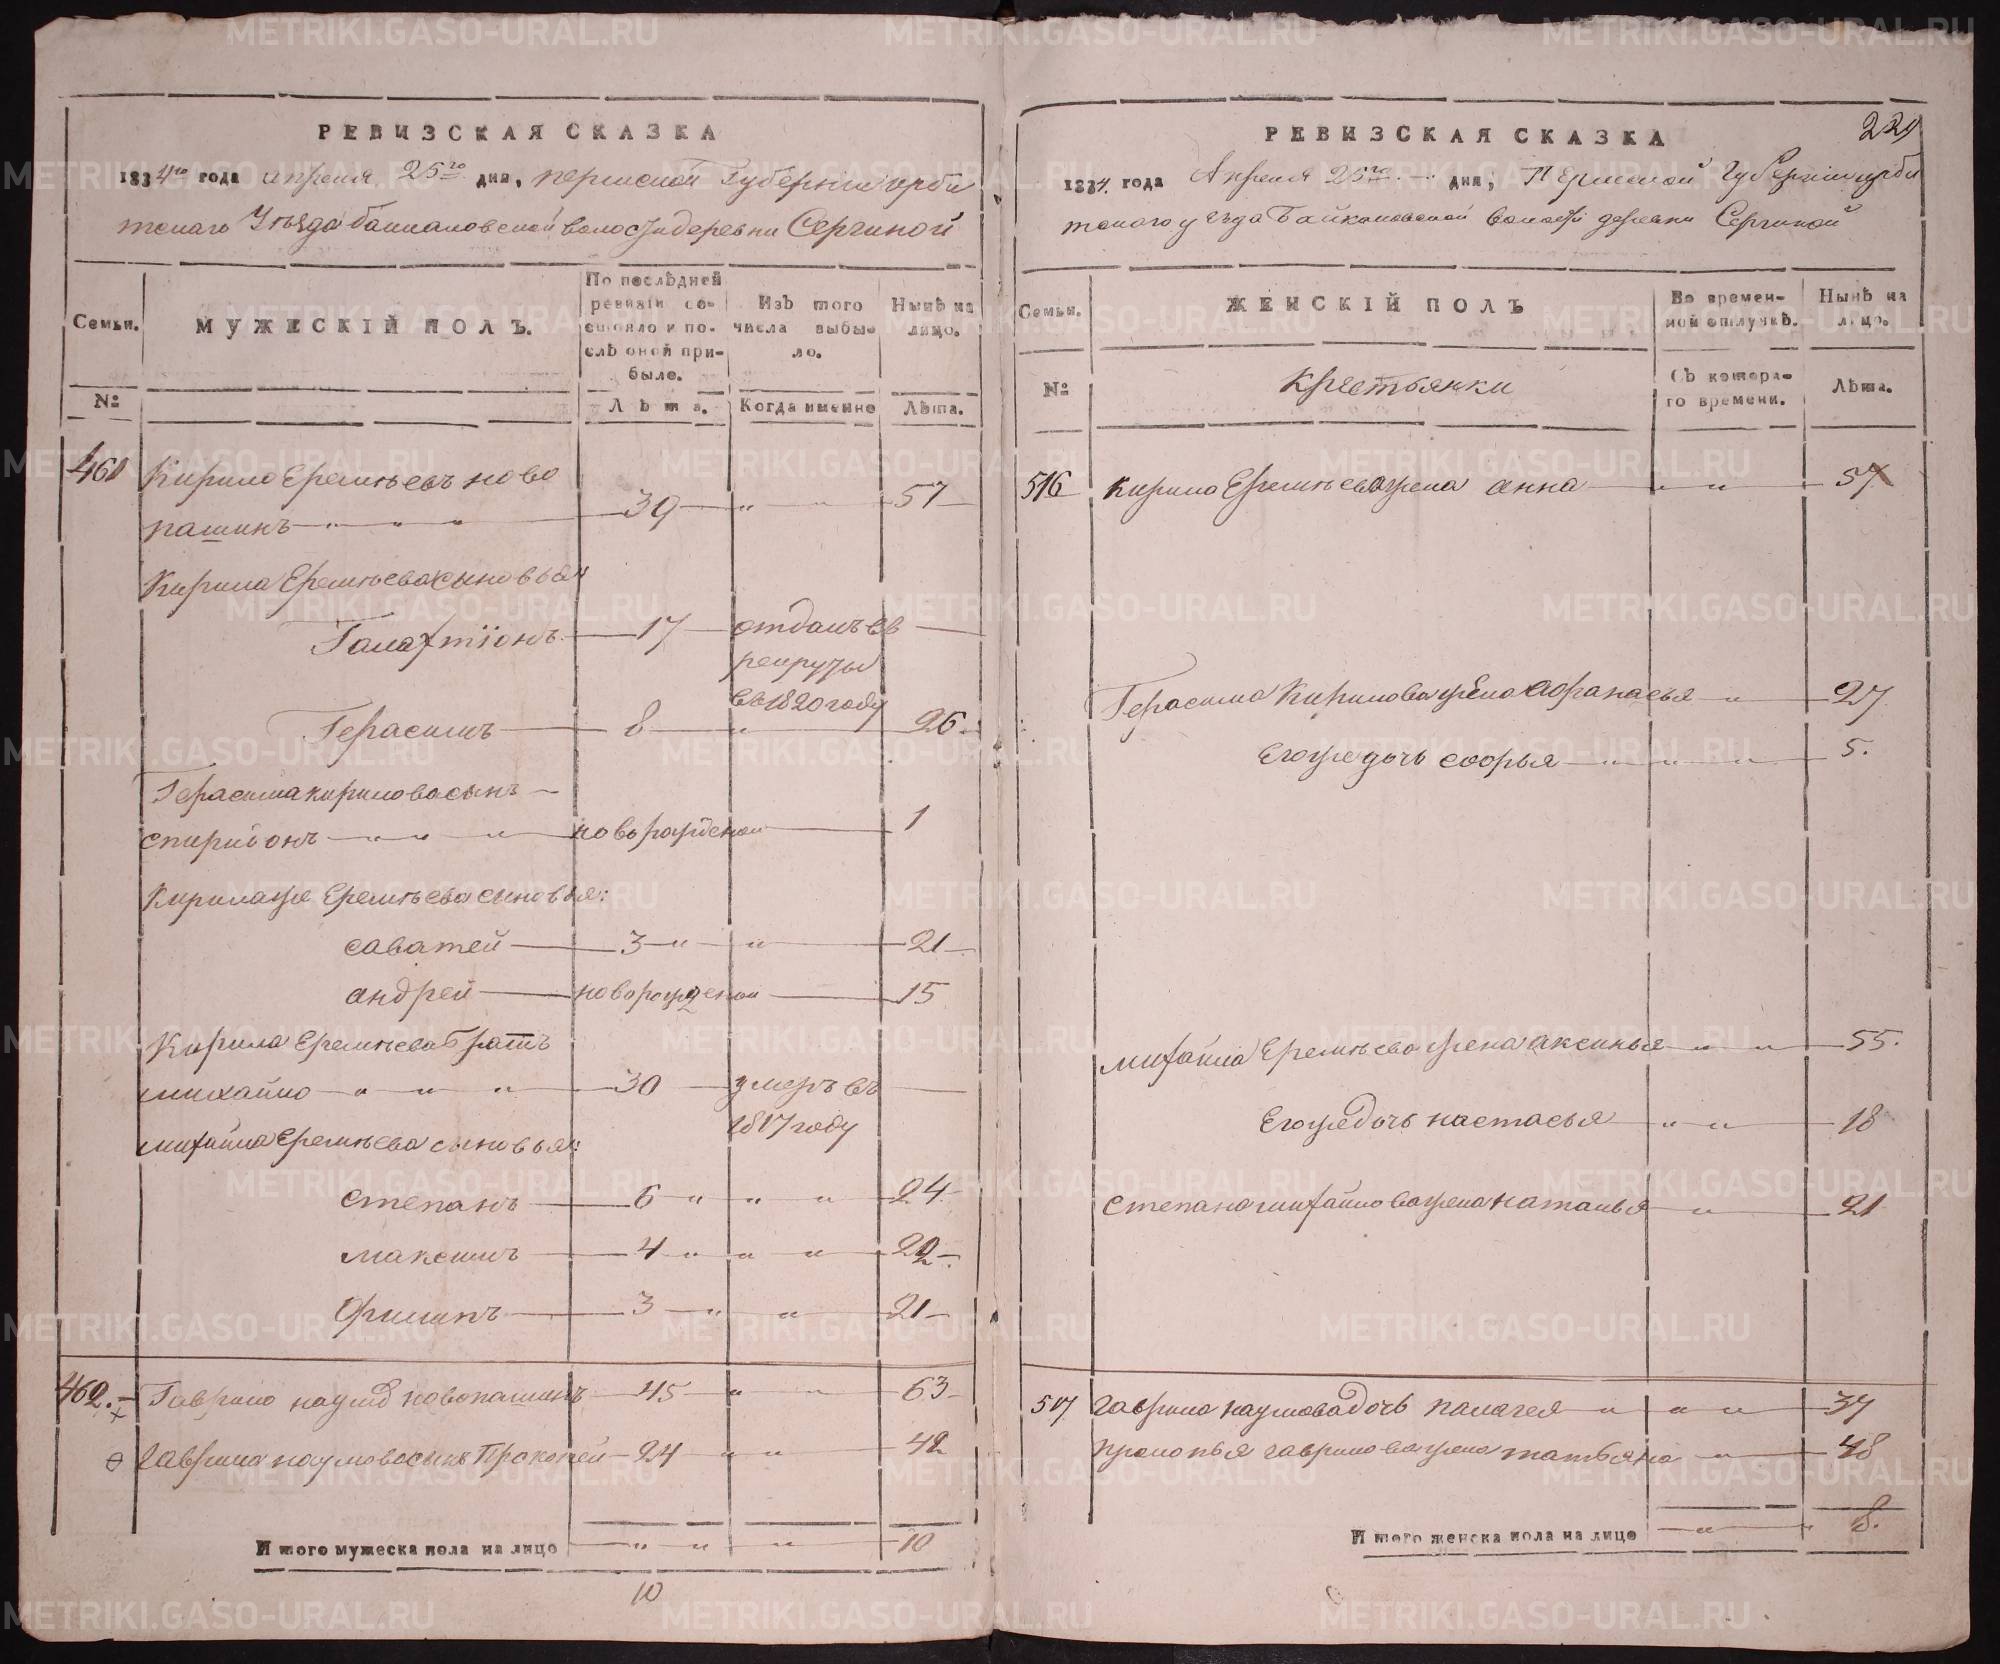 РЕВИЗСКАЯ СКАЗКА
1834го года апреля 25го дня, пермской Губернии ирби
тскаго Уѣзда Баикаловской волости деревни Сергиной
Семьи.
МУЖЕСКІЙ ПОЛЪ.
По послѣдней ревизіи состояло и послѣ оной прибыло.
Изъ того числа выбыло.
Нынѣ на лицо.
№
Лѣта.
Когда именно
Лѣта.
461 Кирило Еремѣевъ ново
пашинъ 39 „ 57
Кирила Еремѣева сыновья
Галахтіонъ 17 отданъ в
рекруты
въ 1820 году
Герасимъ 8 „ 26
Герасима кирилова сынъ
спиридонъ „ „ новорожденой 1
Кирила же Еремѣева сыновья:
саватей 3 „ „ 21
андрей новорожденой 15
Кирила Еремѣева братъ
михайло „ „ „ 30 умеръ въ
1817 году
михайла Еремѣева сыновья:
степанъ 6 „ „ „ 24
максимъ 4 „ „ „ 22
Филипъ 3 „ „ 21
462. Гаврило наумов новопашинъ 45 „ „ 63
Гаврила наумова сынъ Прокопей 24 „ „ 42
Итого мужеска пола на лицо „ „ „ 10
10
229
РЕВИЗСКАЯ СКАЗКА
1834. года Апреля 25го дня, Пермской Губернии ирби
тскаго уезда Байкаловской волости деревни Сергиной
Семьи.
ЖЕНСКІЙ ПОЛЪ
Во временной отлучкѣ.
Нынѣ на лицо.
№
Крестьянки
Съ котораго времени.
Лѣта.
516 кирила Еремѣева жена анна „ „ 57
Герасима Кирилова жена афанасья „ 27
Его же дочь софья „ „ „ 5.
михайла Еремѣева жена аксинья „ „ 55.
Его же дочь настасья „ „ 18
степана михайлова жена наталья „ 21
517 гаврила наумова дочь палагея „ „ „ 37
прокопья гаврилова жена татьяна „ 48
Итого женска пола на лицо „ 8.
METRIKI.GASO-URAL.RU